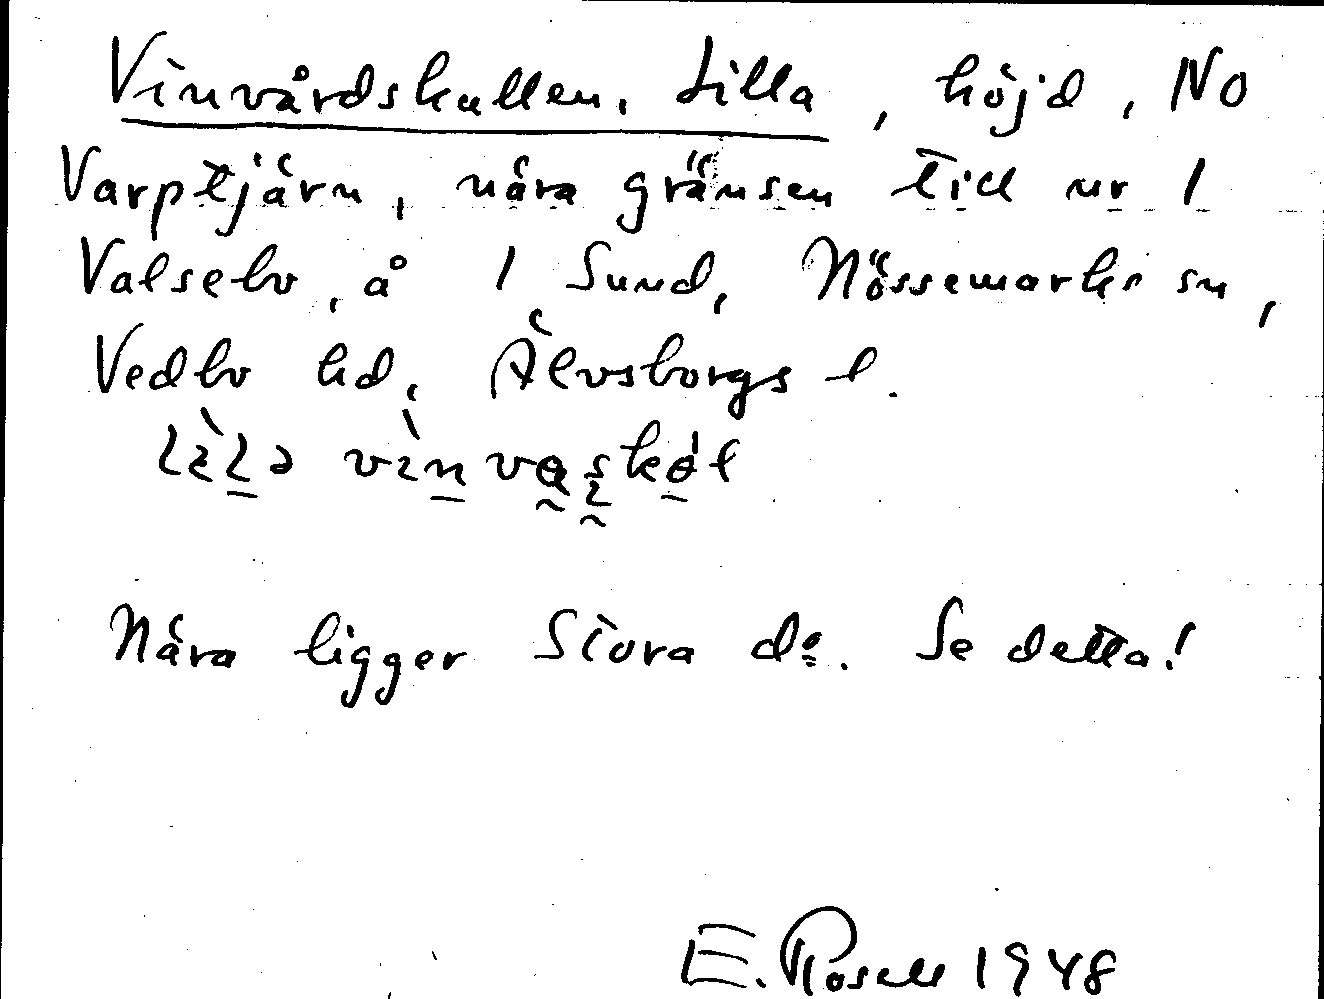 Vinvårdskullen, Lilla, höjd, NO
Varptjärn, nära gränsen till nr 1
Valsebo, å 1 Sund, Nössemarks sn,
Vedbo hd, Älvsborgs l.
Nära ligger Stora do. Se detta!
E. Rosell 1948